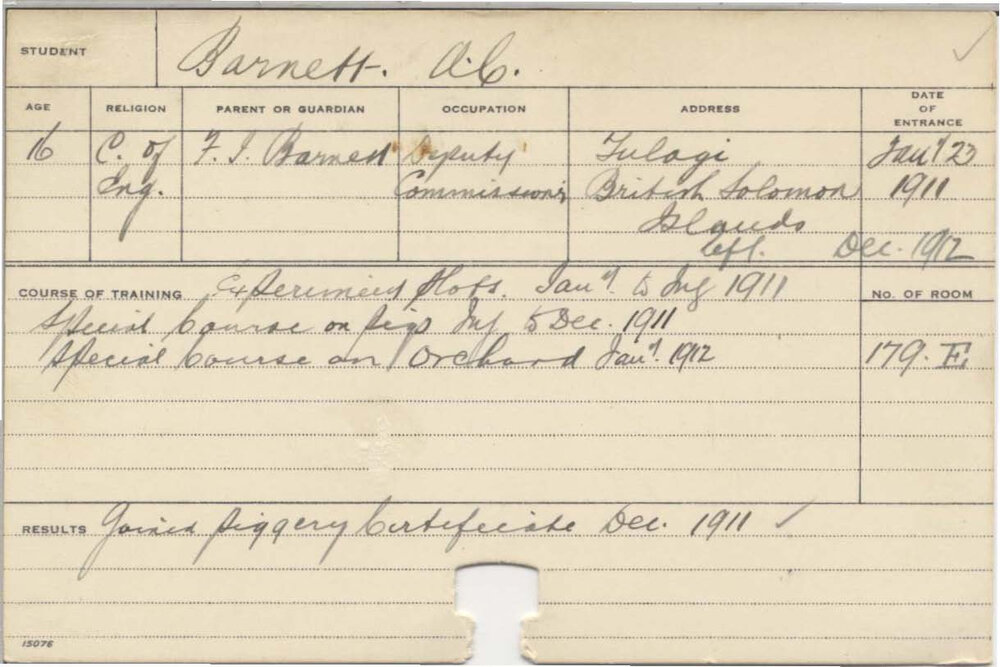 STUDENT Barnett. A.C.
AGE RELIGION PARENT OR GUARDIAN OCCUPATION ADDRESS DATE OF ENTRANCE
16 C. of F. J. Barnett Deputy Tulagi Jany 23
Eng. Commissioner British Solomon 1911
Islands
Left. Dec. 1912
COURSE OF TRAINING Experiment Plots. Jany. to July 1911 No. OF ROOM
Special Course on pigs July to Dec. 1911
Special Course on Orchard Jany. 1912 179. E.
RESULTS Gained Piggery Certificate Dec. 1911
15076